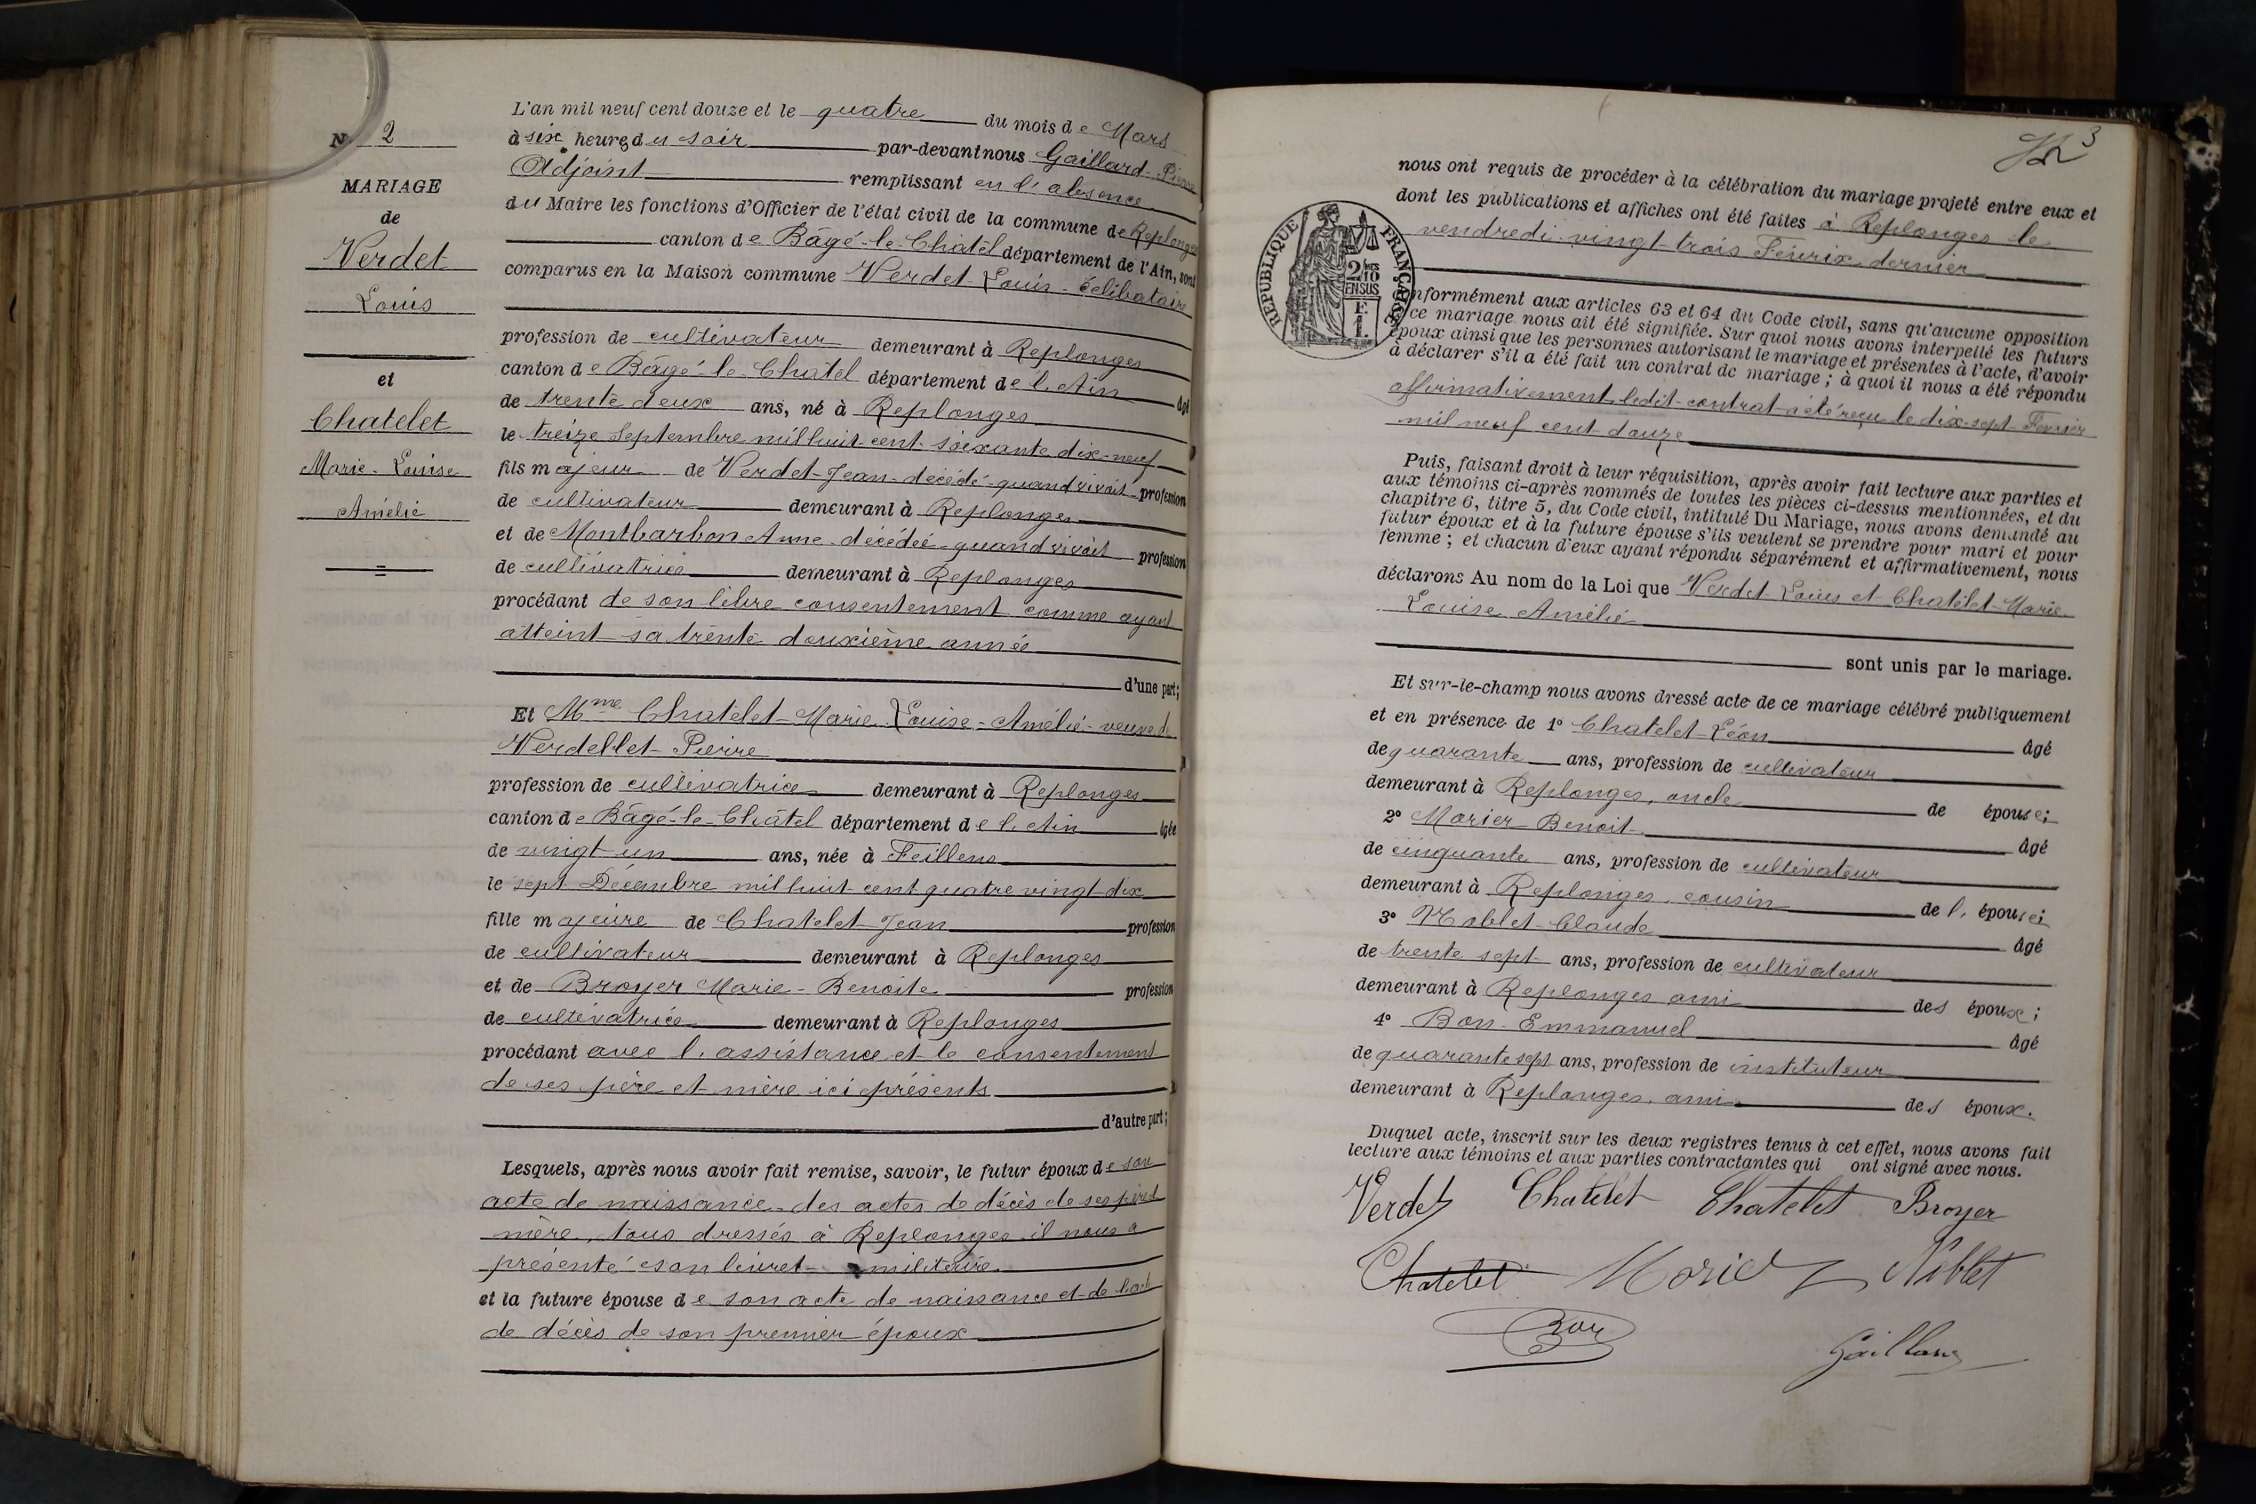 N° 2
MARIAGE
de
Verdet
Louis
et
Chatelet
Marie-Louise
Amélie
L'an mil neuf cent douze et le quatre du mois de Mars
à six heures du soir par-devant nous Gaillard Pierre
Adjoint remplissant en l'absence
du Maire les fonctions d'Officier de l'état civil de la commune de Replonges
canton de Bâgé-le-Châtel département de l'Ain, sont
comparus en la Maison commune Verdet Louis célibataire
profession de cultivateur demeurant à Replonges
canton de Bâgé-le-Châtel département de l'Ain âgé
de trente deux ans, né à Replonges
le treize Septembre mil huit cent soixante dix-neuf
fils majeur de Verdet Jean décédé quand vivait profession
de cultivateur demeurant à Replonges
et de Montbarbon Anne décédée quand vivait profession
de cultivatrice demeurant à Replonges
procédant de son libre consentement comme ayant
atteint sa trente deuxième année
d'une part;
Et Mme Chatelet Marie Louise Amélie veuve de
Verdellet Pierre
profession de cultivatrice demeurant à Replonges
canton de Bâgé-le-Châtel département de l'Ain âgée
de vingt un ans, née à Feillens
le sept Décembre mil huit cent quatre vingt dix
fille majeure de Chatelet Jean profession
de cultivateur demeurant à Replonges
et de Broyer Marie-Benoite profession
de cultivatrice demeurant à Replonges
procédant avec l'assistance et le consentement
de ses père et mère ici présents
d'autre part;
Lesquels, après nous avoir fait remise, savoir, le futur époux de son
acte de naissance des actes de décès de ses père et
mère, tous dressés à Replonges il nous a
présenté son livret militaire
et la future épouse de son acte de naissance et de l'acte
de décès de son premier époux
3
nous ont requis de procéder à la célébration du mariage projeté entre eux et
dont les publications et affiches ont été faites à Replonges le
vendredi vingt trois Février dernier
RÉPUBLIQUE FRANÇAISE
2/10 EN SUS
1 F.
conformément aux articles 63 et 64 du Code civil, sans qu'aucune opposition
à ce mariage nous ait été signifiée. Sur quoi nous avons interpellé les futurs
époux ainsi que les personnes autorisant le mariage et présentes à l'acte, d'avoir
à déclarer s'il a été fait un contrat de mariage ; à quoi il nous a été répondu
affirmativement ledit contrat a été reçu le dix-sept Février
mil neuf cent douze
Puis, faisant droit à leur réquisition, après avoir fait lecture aux parties et
aux témoins ci-après nommés de toutes les pièces ci-dessus mentionnées, et du
chapitre 6, titre 5, du Code civil, intitulé Du Mariage, nous avons demandé au
futur époux et à la future épouse s'ils veulent se prendre pour mari et pour
femme ; et chacun d'eux ayant répondu séparément et affirmativement, nous
déclarons Au nom de la Loi que Verdet Louis et Chatelet Marie
Louise Amélie
sont unis par le mariage.
Et sur-le-champ nous avons dressé acte de ce mariage célébré publiquement
et en présence de 1° Chatelet Léon âgé
de quarante ans, profession de cultivateur
demeurant à Replonges, oncle de épouse;
2° Morier Benoit âgé
de cinquante ans, profession de cultivateur
demeurant à Replonges, cousin de l'épouse;
3° Noblet Claude âgé
de trente sept ans, profession de cultivateur
demeurant à Replonges ami des époux;
4° Bon Emmanuel âgé
de quarante sept ans, profession de instituteur
demeurant à Replonges, ami des époux.
Duquel acte, inscrit sur les deux registres tenus à cet effet, nous avons fait
lecture aux témoins et aux parties contractantes qui ont signé avec nous.
Verdet Chatelet Chatelet Broyer
Chatelet Morier Noblet
Bon
Gaillard